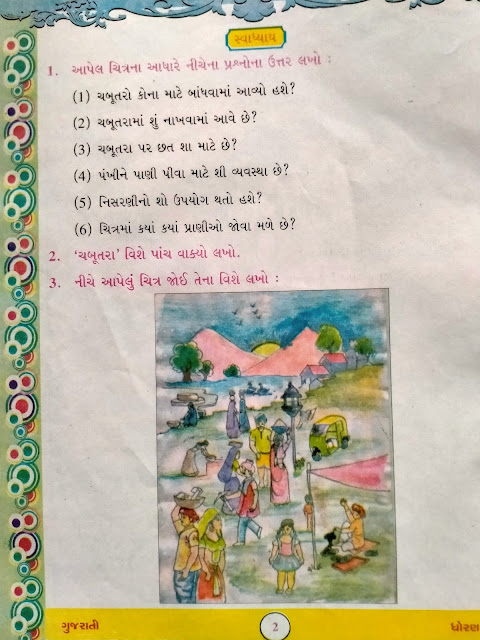 સ્વાધ્યાય
1. આપેલ ચિત્રના આધારે નીચેના પ્રશ્નોના ઉત્તર લખો :
(1) ચબૂતરો કોના માટે બાંધવામાં આવ્યો હશે?
(2) ચબૂતરામાં શું નાખવામાં આવે છે?
(3) ચબૂતરા પર છત શા માટે છે?
(4) પંખીને પાણી પીવા માટે શી વ્યવસ્થા છે?
(5) નિસરણીનો શો ઉપયોગ થતો હશે?
(6) ચિત્રમાં કયાં કયાં પ્રાણીઓ જોવા મળે છે?
2. ‘ચબૂતરા’ વિશે પાંચ વાક્યો લખો.
3. નીચે આપેલું ચિત્ર જોઈ તેના વિશે લખો :
ગુજરાતી 2 ધોરણ